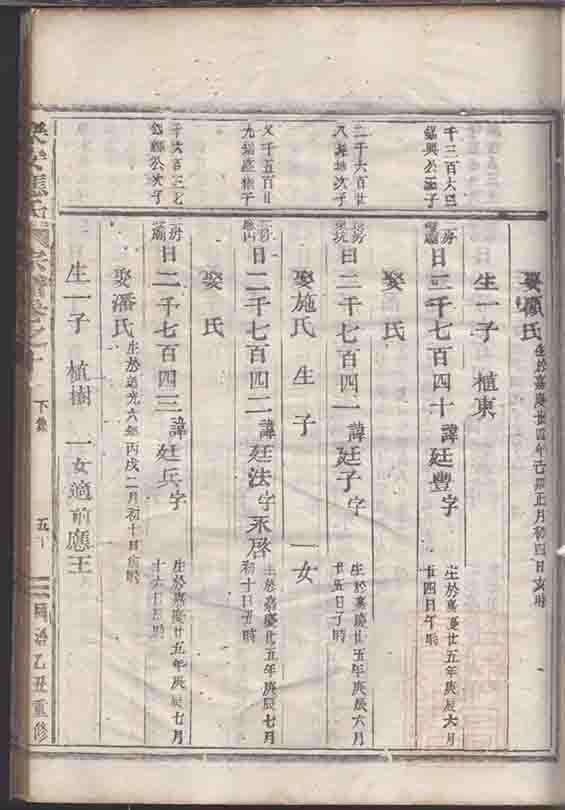 娶顏氏 生於嘉慶廿四年己卯正月初四日亥時
生一子 植東
千三百六
公三子
房 曰二千七百四十 諱廷豐 字 生於嘉慶廿五年庚辰六月
廿四日午時
娶 氏
二千六百廿
八 次子
房 曰二千七百四一 諱廷子 字 生於嘉慶廿五年庚辰六月
廿五日子時
娶施氏 生 子 一女
又千五百廿
九 子
房 曰二千七百四二 諱廷法 字永啓 生於嘉慶廿五年庚辰七月
初十日丑時
娶 氏
千六百三七
公次子
二房 曰二千七百四三 諱廷兵 字 生於嘉慶廿五年庚辰七月
十六日 時
娶潘氏 生於道光六年丙戌二月初十日 時
生一子 植樹 一女適前應王
應氏 宗譜卷之十 下集 五十 同治乙丑重修